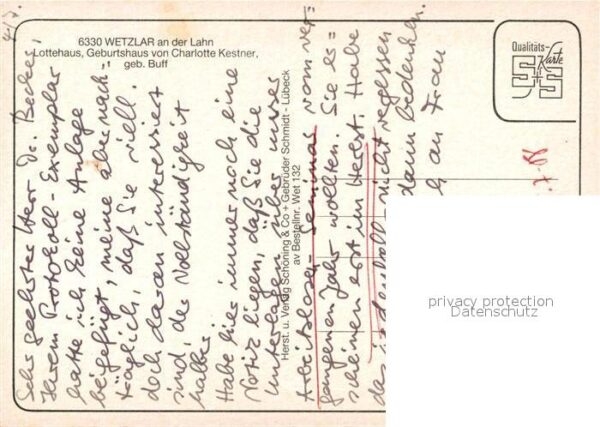 4/7.
6330 WETZLAR an der Lahn
Lottehaus, Geburtshaus von Charlotte Kestner,
geb. Buff
Qualitäts-
Karte
S+S
Sehr geehrter Herr Dr. Becker,
Ihrem Protokoll-Exemplar
hatte ich keine Anlage
beigefügt, meine aber nach-
träglich, daß Sie viell.
doch daran interessiert
sind, der Vollständigkeit
halber
Habe hier immer noch eine
Notiz liegen, daß Sie die
Unterlagen über unser
Arbeitslosen-Seminar vom ver-
gangenen Jahr wollten. Sie er=
scheinen erst im Herbst. Habe
nicht vergessen
dann Bedenken
an Frau
Herst. u. Verlag Schöning & Co + Gebrüder Schmidt - Lübeck
av Bestellnr. Wet 132
privacy protection
Datenschutz